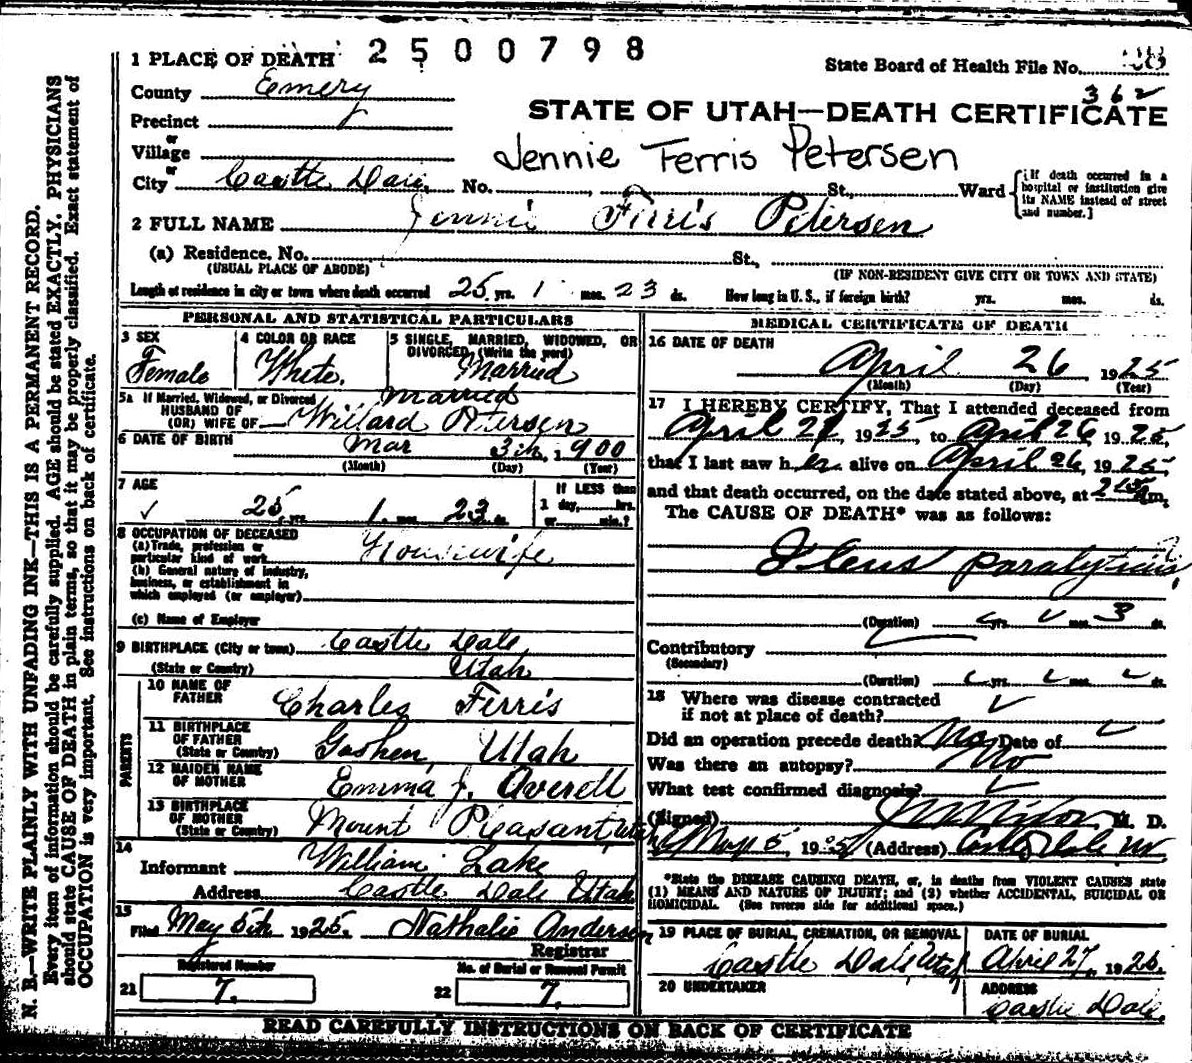 2500798
1 PLACE OF DEATH
State Board of Health File No.
County Emery
362
STATE OF UTAH—DEATH CERTIFICATE
Precinct
or
Village
Jennie Ferris Petersen
or
City Castle Dale No. St., Ward
{[If death occurred in a hospital or institution give its NAME instead of street and number.]
2 FULL NAME Jennie Ferris Petersen
(a) Residence. No. St.,
(USUAL PLACE OF ABODE) (IF NON-RESIDENT GIVE CITY OR TOWN AND STATE)
Length of residence in city or town where death occurred 25 yrs. 1 mos. 23 ds. How long in U. S., if foreign birth? yrs. mos. ds.
PERSONAL AND STATISTICAL PARTICULARS
3 SEX
Female
4 COLOR OR RACE
White.
5 SINGLE, MARRIED, WIDOWED, OR
DIVORCED, (Write the word)
Married
5a If Married, Widowed, or Divorced married
HUSBAND OF
(OR) WIFE OF Willard Petersen
6 DATE OF BIRTH Mar 3th, 1900
(Month) (Day) (Year)
7 AGE
25 yrs. 1 mos. 23 ds.
If LESS than
1 day, hrs.
or min.?
8 OCCUPATION OF DECEASED
(a) Trade, profession or
particular kind of work Housewife
(b) General nature of industry,
business, or establishment in
which employed (or employer)
(c) Name of Employer
9 BIRTHPLACE (City or town) Castle Dale
(State or Country) Utah
PARENTS
10 NAME OF
FATHER Charles Ferris
11 BIRTHPLACE
OF FATHER
(State or Country) Goshen, Utah
12 MAIDEN NAME
OF MOTHER Emma J. Averett
13 BIRTHPLACE
OF MOTHER
(State or Country) Mount Pleasant, Utah
14
Informant William Lake
Address Castle Dale Utah
15
Filed May 5th 1925. Nathalie Andersen
Registrar
Registered Number
21 7.
No. of Burial or Removal Permit
22 7.
MEDICAL CERTIFICATE OF DEATH
16 DATE OF DEATH
April 26 1925
(Month) (Day) (Year)
17 I HEREBY CERTIFY, That I attended deceased from
April 21, 1925, to April 26, 1925,
that I last saw her alive on April 26, 1925,
and that death occurred, on the date stated above, at m.
The CAUSE OF DEATH* was as follows:
Ileus paralyticus,
(Duration) yrs. mos. 3 ds.
Contributory
(Secondary)
(Duration) yrs. mos. ds.
18 Where was disease contracted
if not at place of death?
Did an operation precede death? No Date of
Was there an autopsy? No
What test confirmed diagnosis?
(Signed) M. D.
May 5, 1925 (Address) Castle Dale Ut
*State the DISEASE CAUSING DEATH, or, in deaths from VIOLENT CAUSES state
(1) MEANS AND NATURE OF INJURY; and (2) whether ACCIDENTAL, SUICIDAL OR
HOMICIDAL. (See reverse side for additional space.)
19 PLACE OF BURIAL, CREMATION, OR REMOVAL
Castle Dale Utah
DATE OF BURIAL
April 27, 1925.
20 UNDERTAKER
ADDRESS
Castle Dale.
READ CAREFULLY INSTRUCTIONS ON BACK OF CERTIFICATE
N. B.—WRITE PLAINLY WITH UNFADING INK—THIS IS A PERMANENT RECORD.
Every item of information should be carefully supplied. AGE should be stated EXACTLY. PHYSICIANS
should state CAUSE OF DEATH in plain terms, so that it may be properly classified. Exact statement of
OCCUPATION is very important. See instructions on back of certificate.